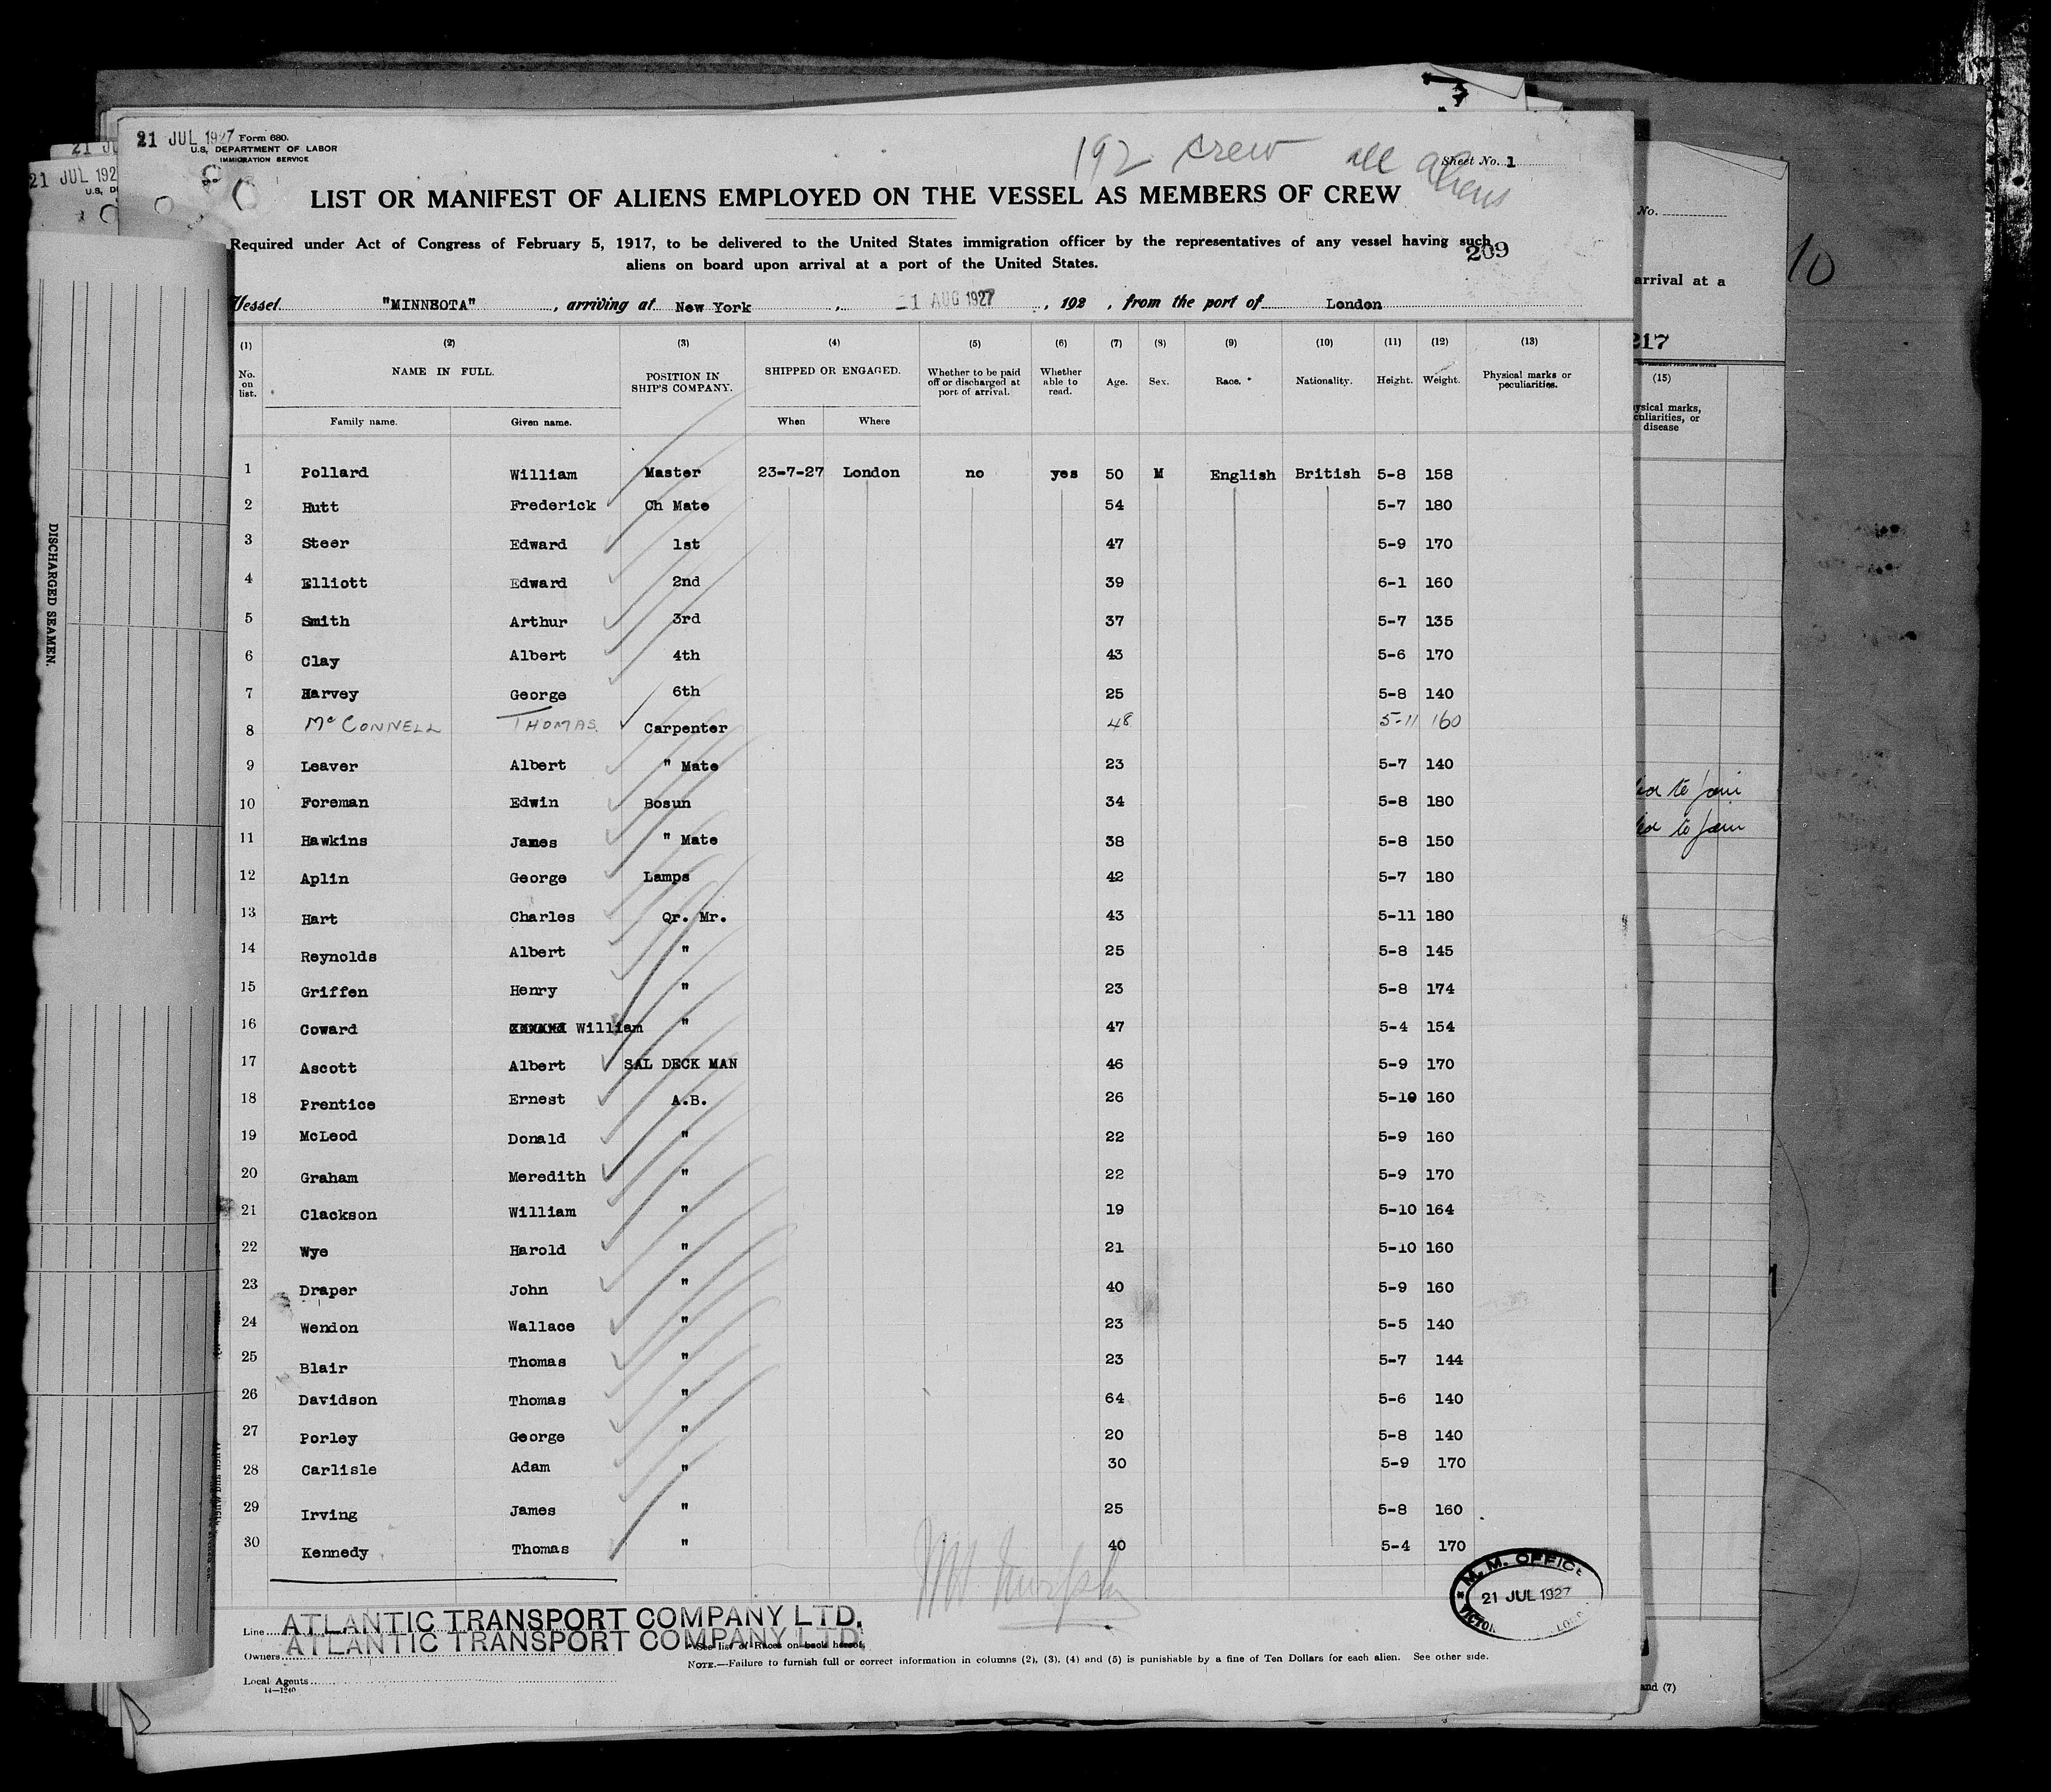 21 JUL 1927 Form 680.
U.S. DEPARTMENT OF LABOR
IMMIGRATION SERVICE
192 crew all aliens
Sheet No. 1
LIST OR MANIFEST OF ALIENS EMPLOYED ON THE VESSEL AS MEMBERS OF CREW
Required under Act of Congress of February 5, 1917, to be delivered to the United States immigration officer by the representatives of any vessel having such
aliens on board upon arrival at a port of the United States.
209
Vessel "MINNEOTA", arriving at New York, 1 AUG 1927, 192 , from the port of London
(1) (2) (3) (4) (5) (6) (7) (8) (9) (10) (11) (12) (13)
No. on list. NAME IN FULL. POSITION IN SHIP'S COMPANY. SHIPPED OR ENGAGED. Whether to be paid off or discharged at port of arrival. Whether able to read. Age. Sex. Race.* Nationality. Height. Weight. Physical marks or peculiarities.
Family name. Given name. When Where
1 Pollard William Master 23-7-27 London no yes 50 M English British 5-8 158
2 Hutt Frederick Ch Mate 54 5-7 180
3 Steer Edward 1st 47 5-9 170
4 Elliott Edward 2nd 39 6-1 160
5 Smith Arthur 3rd 37 5-7 135
6 Clay Albert 4th 43 5-6 170
7 Harvey George 6th 25 5-8 140
8 McCONNELL THOMAS. Carpenter 48 5-11 160
9 Leaver Albert " Mate 23 5-7 140
10 Foreman Edwin Bosun 34 5-8 180
11 Hawkins James " Mate 38 5-8 150
12 Aplin George Lamps 42 5-7 180
13 Hart Charles Qr. Mr. 43 5-11 180
14 Reynolds Albert " 25 5-8 145
15 Griffen Henry " 23 5-8 174
16 Coward William " 47 5-4 154
17 Ascott Albert SAL DECK MAN 46 5-9 170
18 Prentice Ernest A.B. 26 5-10 160
19 McLeod Donald " 22 5-9 160
20 Graham Meredith " 22 5-9 170
21 Clackson William " 19 5-10 164
22 Wye Harold " 21 5-10 160
23 Draper John " 40 5-9 160
24 Wendon Wallace " 23 5-5 140
25 Blair Thomas " 23 5-7 144
26 Davidson Thomas " 64 5-6 140
27 Porley George " 20 5-8 140
28 Carlisle Adam " 30 5-9 170
29 Irving James " 25 5-8 160
30 Kennedy Thomas " 40 5-4 170
M. M. OFFICE
21 JUL 1927
Line ATLANTIC TRANSPORT COMPANY LTD.
Owners ATLANTIC TRANSPORT COMPANY LTD.
* See list of Races on back hereof.
NOTE.—Failure to furnish full or correct information in columns (2), (3), (4) and (5) is punishable by a fine of Ten Dollars for each alien. See other side.
Local Agents
14—1240
DISCHARGED SEAMEN.
21 JUL 192
No.
10
arrival at a
217
(15)
disease
to join
to join
and (7)